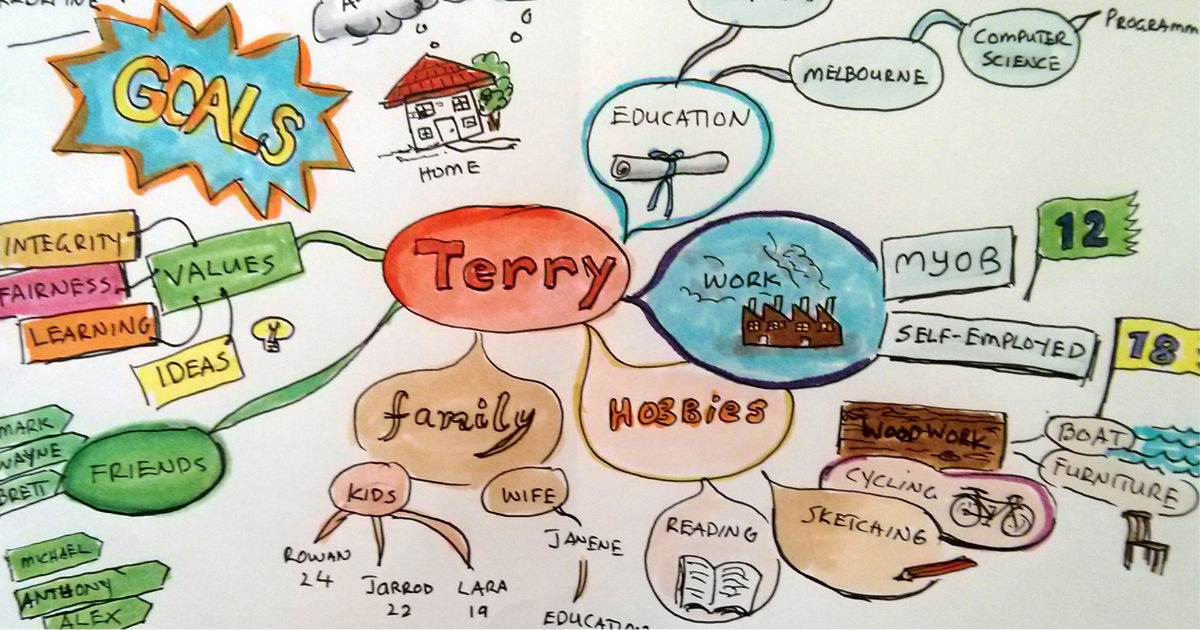 GOALS
HOME
EDUCATION
MELBOURNE
COMPUTER
SCIENCE
PROGRAMM
INTEGRITY
FAIRNESS
LEARNING
VALUES
IDEAS
Terry
WORK
MYOB
12
SELF-EMPLOYED
18
family
HOBBIES
WOODWORK
BOAT
FURNITURE
CYCLING
SKETCHING
READING
FRIENDS
MARK
WAYNE
BRETT
MICHAEL
ANTHONY
ALEX
KIDS
ROWAN
24
JARROD
22
LARA
19
WIFE
JANENE
EDUCATION